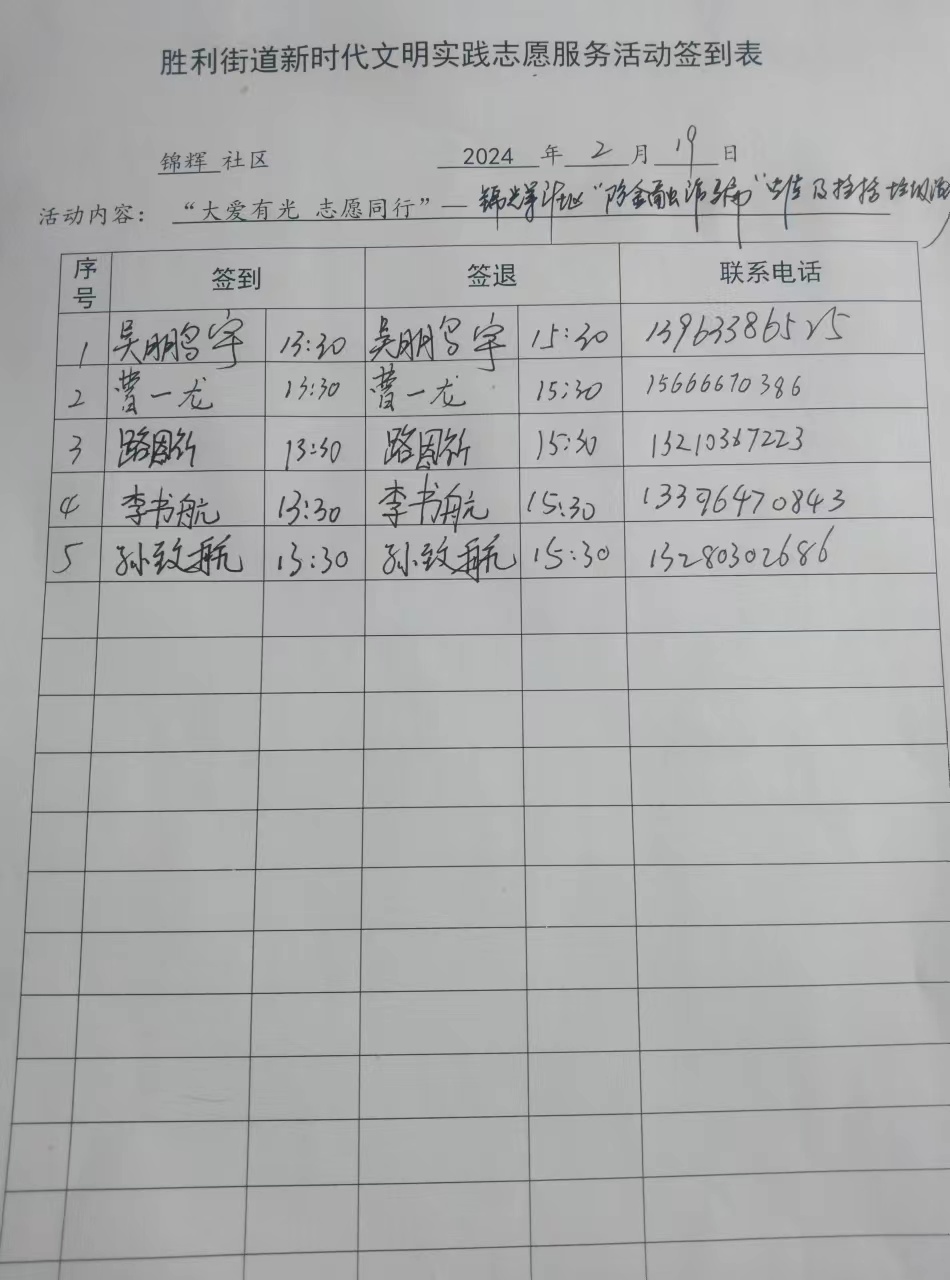 胜利街道新时代文明实践志愿服务活动签到表
锦辉 社区 2024 年 2 月 19 日
活动内容： “大爱有光 志愿同行”— 锦辉社区“防金融诈骗”宣传及捡拾垃圾活
序号 签到 签退 联系电话
1 吴鹏宇 13:30 吴鹏宇 15:30 13963386525
2 曹一龙 13:30 曹一龙 15:30 15666670386
3 路恩行 13:30 路恩行 15:30 13210367223
4 李书航 13:30 李书航 15:30 13396470843
5 孙致航 13:30 孙致航 15:30 13280302686